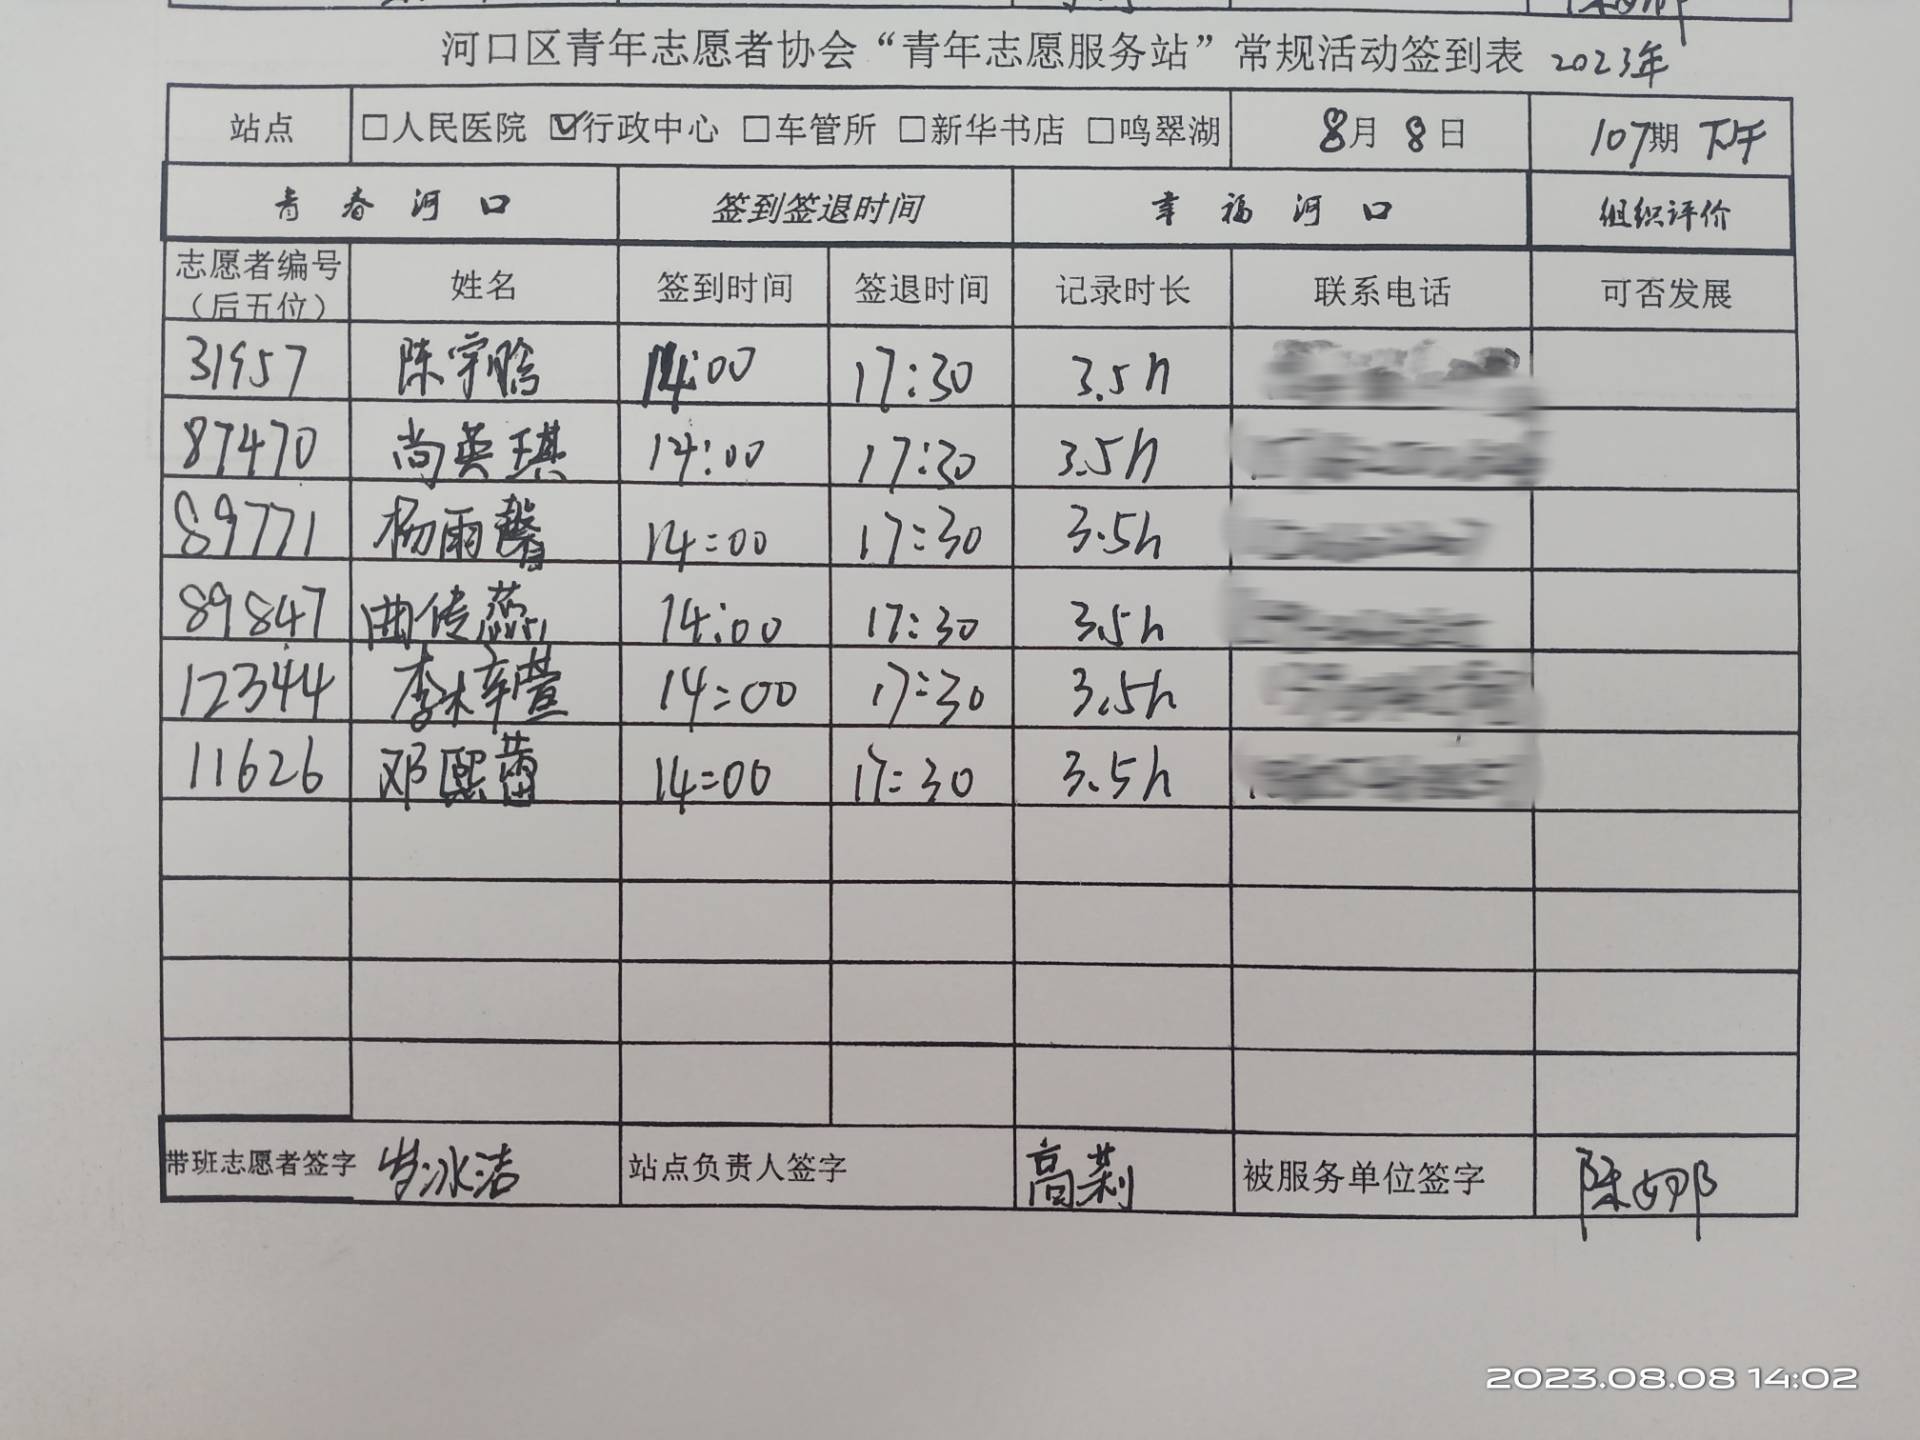 河口区青年志愿者协会“青年志愿服务站”常规活动签到表 2023年
站点 □人民医院 ☑行政中心 □车管所 □新华书店 □鸣翠湖 8月8日 107期 下午
青春河口 签到签退时间 幸福河口 组织评价
志愿者编号（后五位） 姓名 签到时间 签退时间 记录时长 联系电话 可否发展
31957 陈宇 14:00 17:30 3.5h
87470 尚英琪 14:00 17:30 3.5h
89771 杨雨馨 14:00 17:30 3.5h
89847 曲传蕊 14:00 17:30 3.5h
12344 李梓萱 14:00 17:30 3.5h
11626 邓熙蕾 14:00 17:30 3.5h
带班志愿者签字 岁冰洁 站点负责人签字 高莉 被服务单位签字 陈娜
2023.08.08 14:02